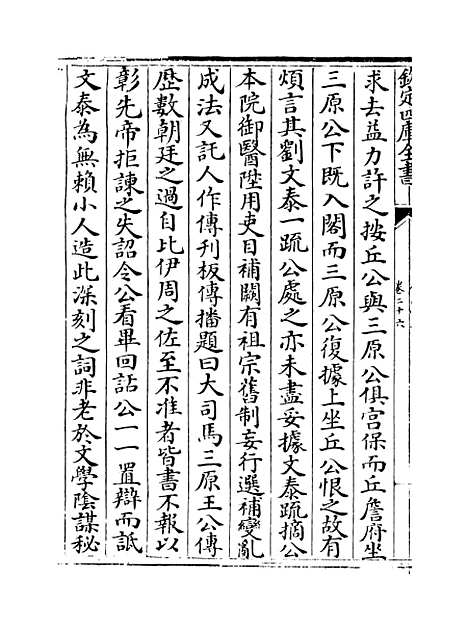 欽定四庫全書
卷二十六
求去益力許之按丘公與三原公俱宫保而丘詹府坐
三原公下既入閣而三原公復據上坐丘公恨之故有
煩言其劉文泰一疏公處之亦未盡妥據文泰疏摘公
本院御醫陞用吏目補闕有祖宗舊制妄行選補變亂
成法又託人作傳刊板傳播題曰大司馬三原王公傳
歴數朝廷之過自比伊周之佐至不准者皆書不報以
彰先帝拒諫之失詔令公看畢回話公一一置辯而詆
文泰為無賴小人造此深刻之詞非老於文學隂謀秘